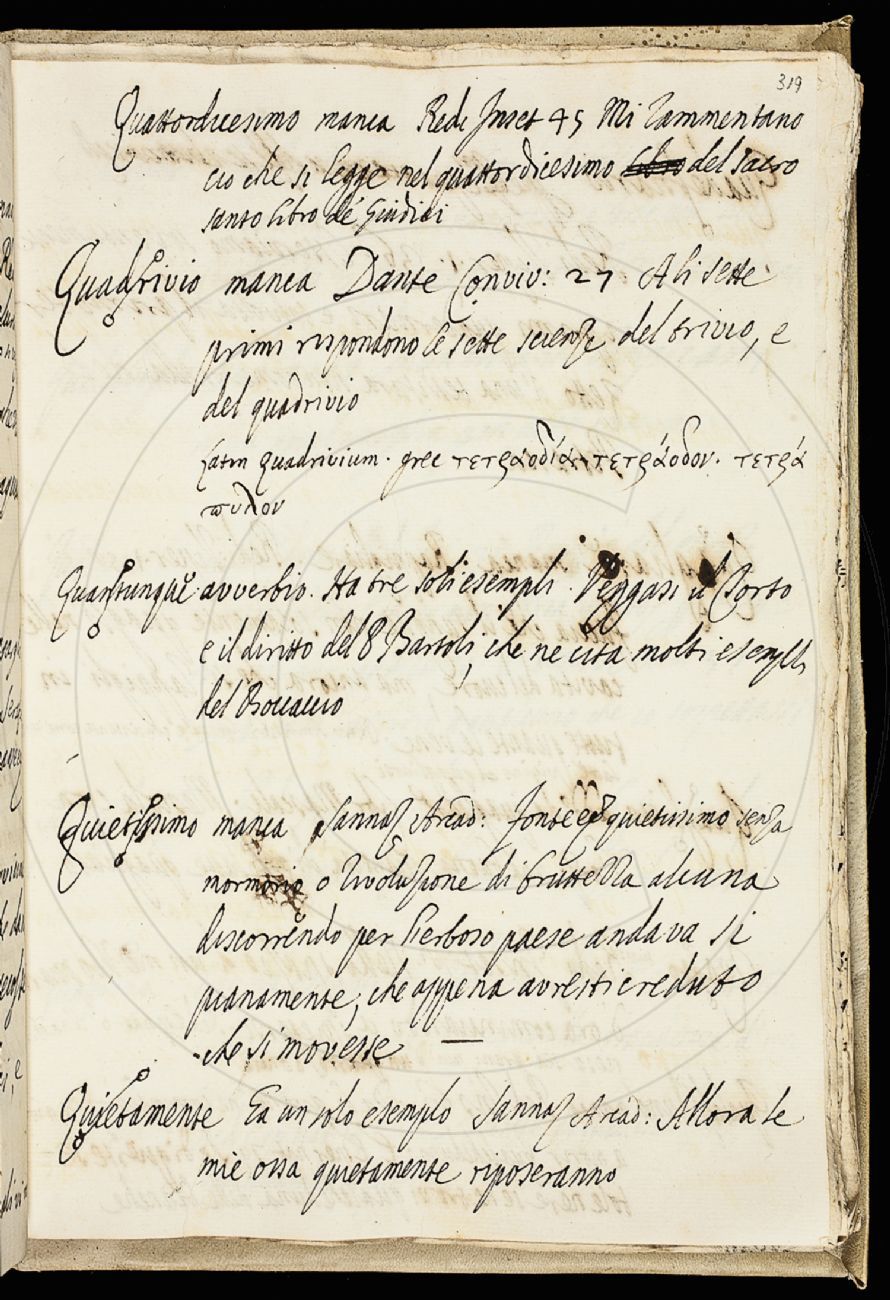 319
Quattordicesimo manca Redi Inset 45 Mi rammentano
ciò che si legge nel quattordicesimo libro del sacro
santo libro de' Giudici
Quadrivio manca Dante Conviv: 27 Ali sette
primi rispondono le sette scienze del trivio, e
del quadrivio
Latin quadrivium. grec τετραοδία. τετράοδον. τετρά
πυλον
Quantunque avverbio. Ha tre soli esempli. Veggasi il Torto
e il diritto del P Bartoli, che ne cita molti esempli
del Boccaccio
Quietissimo manca Sannaz Arcad: fonte quietissimo senza
mormorio o rivoluzione di bruttezza alcuna
discorrendo per l'erboso paese andava si
pianamente, che appena avresti creduto
che si movesse —
Quietamente Ea un solo esemplo Sannaz Arcad: Allora le
mie ossa quietamente riposeranno